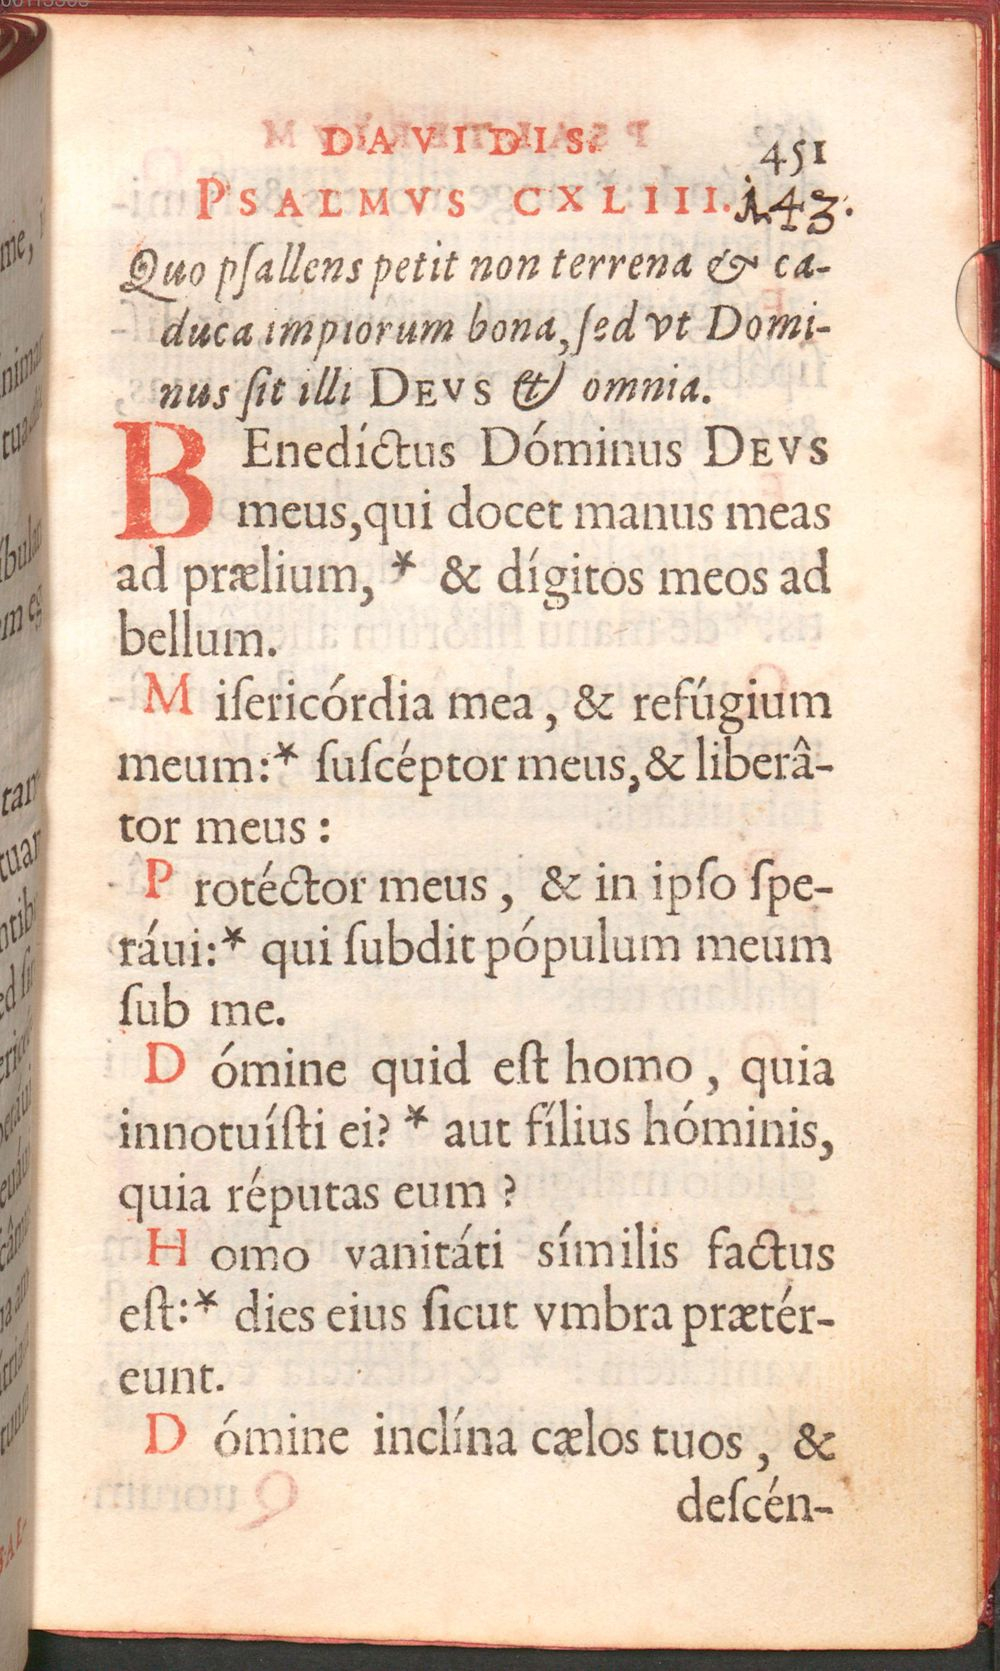 DAVIDIS. 451
PSALMVS CXLIII. 143.
Quo pſallens petit non terrena & ca-
duca impiorum bona, ſed vt Domi-
nus ſit illi DEVS & omnia.
BEnedíctus Dóminus DEVS
meus, qui docet manus meas
ad prælium, * & dígitos meos ad
bellum.
Miſericórdia mea, & refúgium
meum:* ſuſcéptor meus, & liberâ-
tor meus:
Protéctor meus, & in ipſo ſpe-
ráui:* qui ſubdit pópulum meum
ſub me.
Dómine quid eſt homo, quia
innotuíſti ei? * aut fílius hóminis,
quia réputas eum?
Homo vanitáti símilis factus
eſt:* dies eius ſicut vmbra prætér-
eunt.
Dómine inclína cælos tuos, &
deſcén-